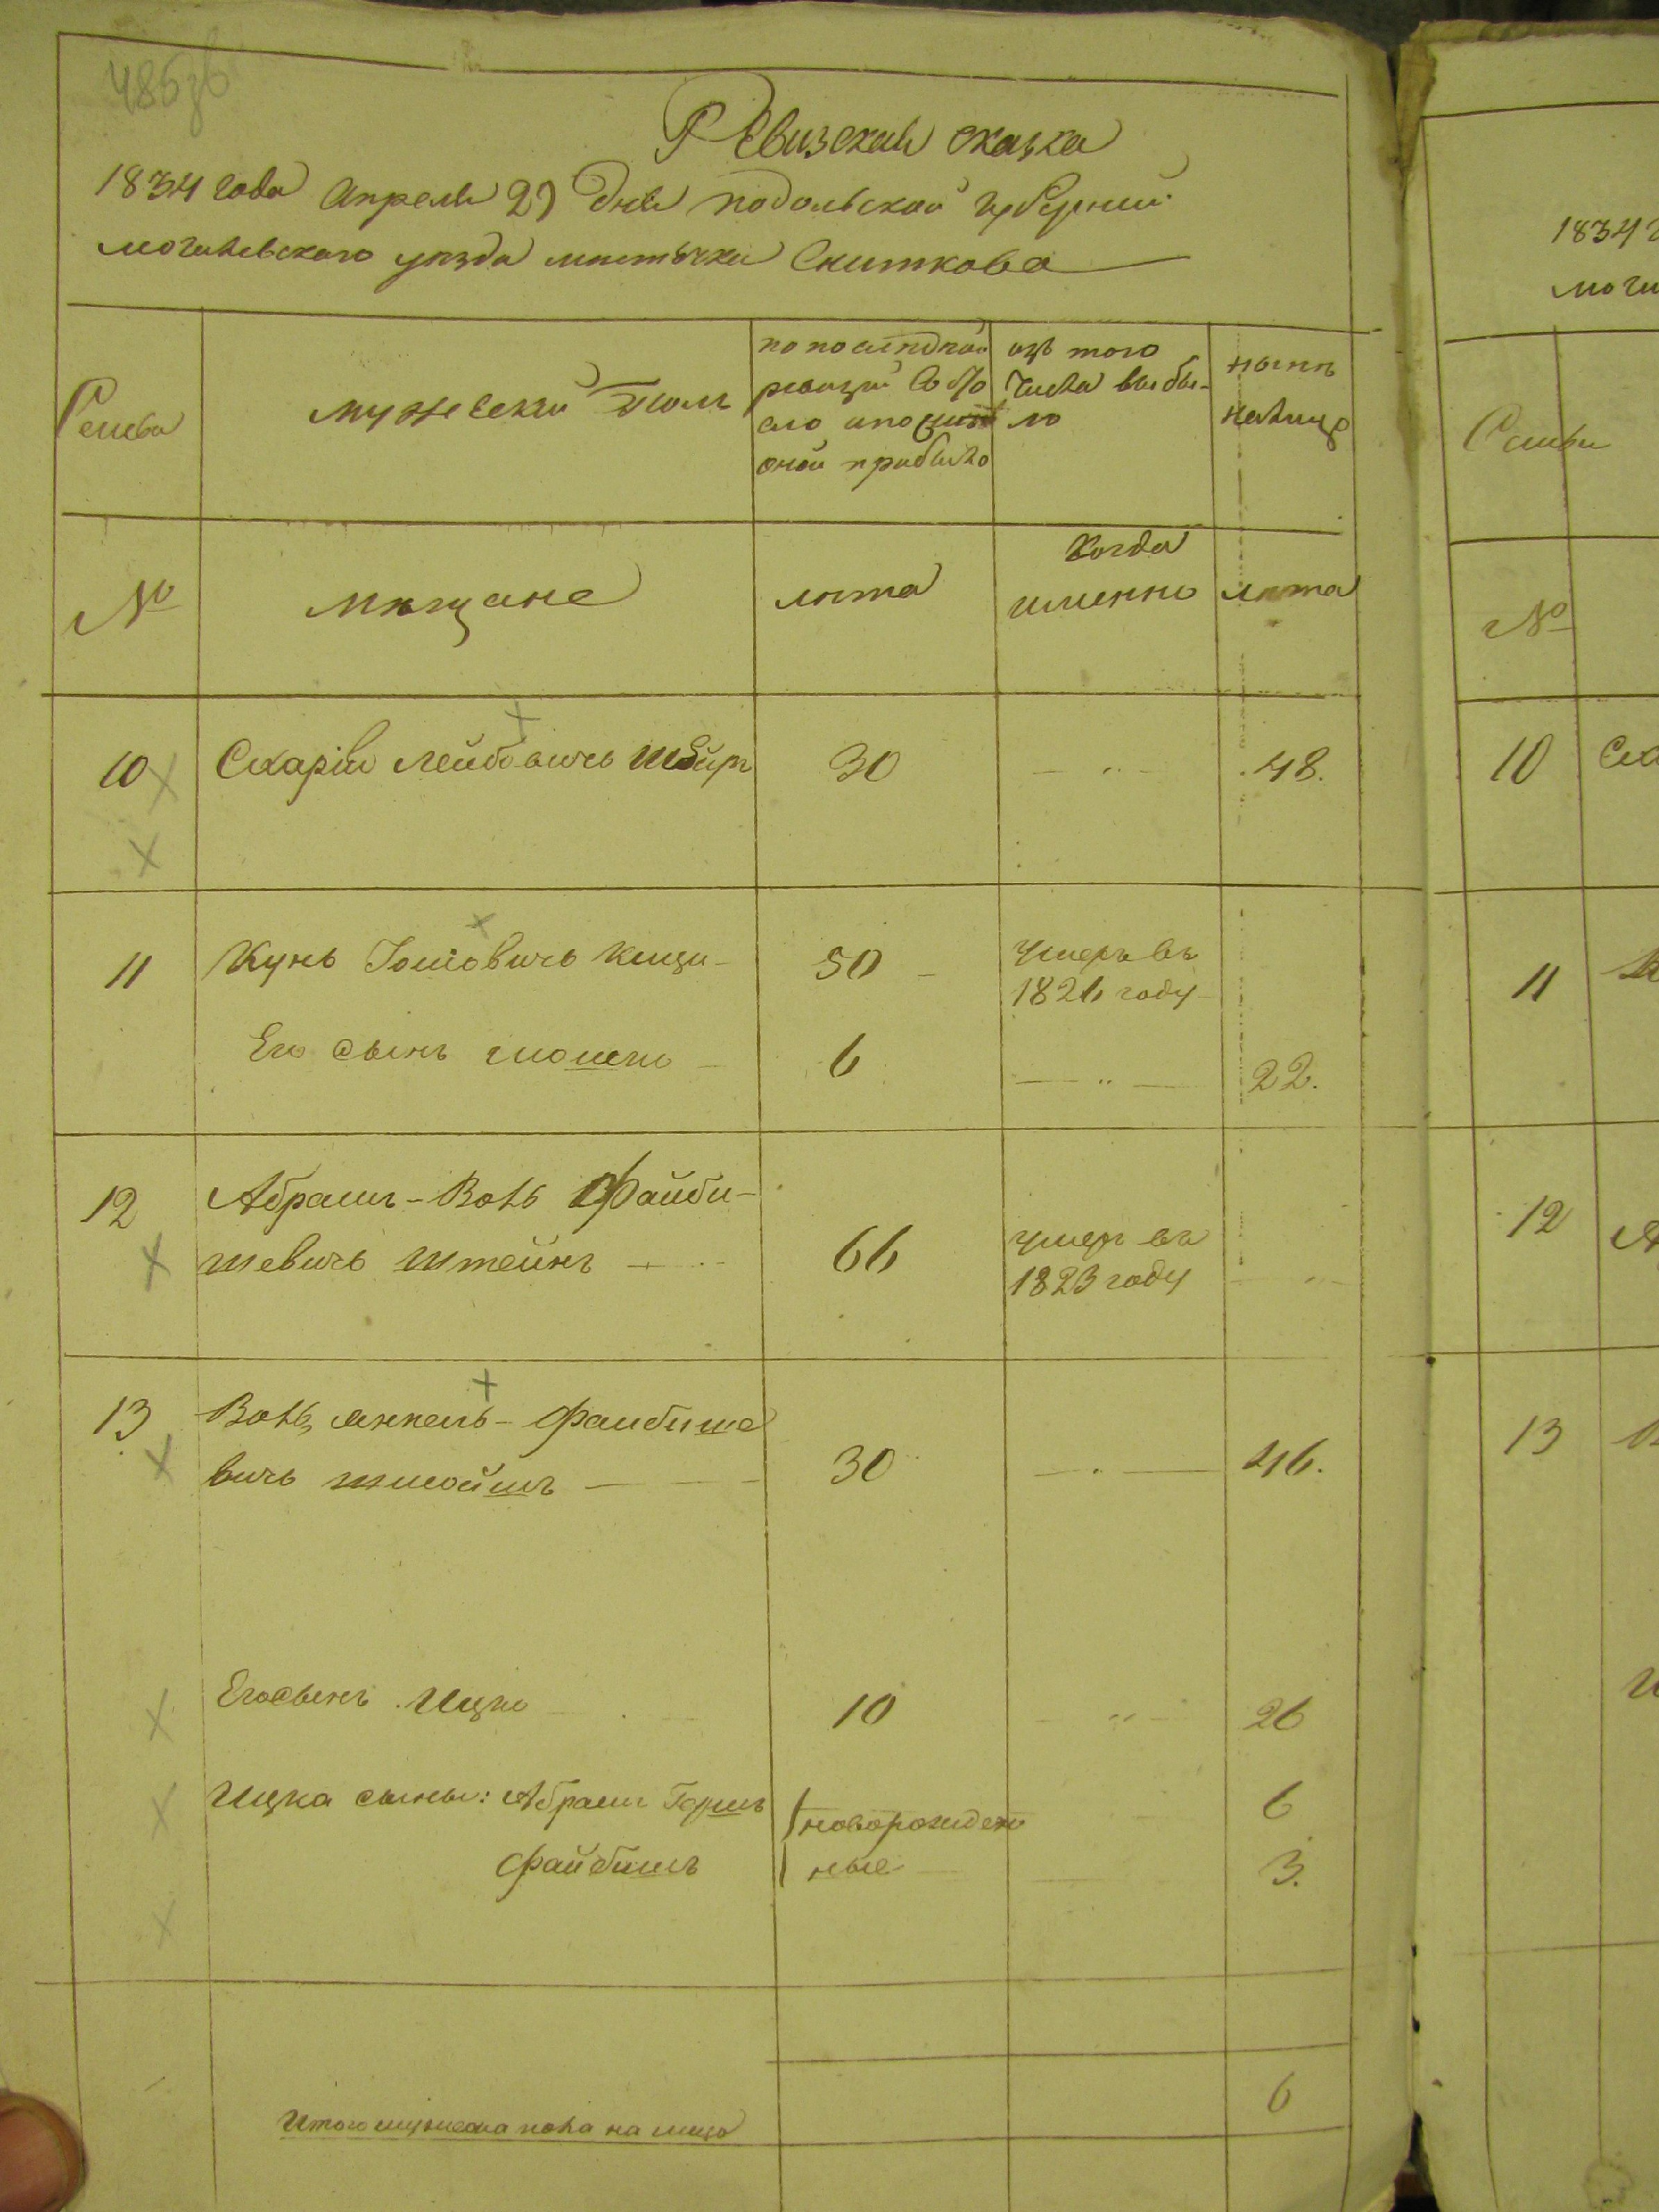 Ревизская сказка
1834 года Апреля 27 дня подольской губерний
могилевского уезда мистѣчка Сниткова
Семьи
мужеский полъ
по последней
ревизий состо
яло и после
оной прибыло
изъ того
числа выбы-
ло
нынѣ
налицо
№
мѣщане
лѣта
Когда
именно
лѣта
10
Схарія Лейбовичъ
30
48.
11
Кунь Іосіовичъ
50
умеръ въ
1826 году
Его сынъ мошко
6
22.
12
Абрамъ-Воль Файби-
шевичъ Штейнъ
66
умеръ въ
1823 году
13
Воль янкель-Файбише
вичъ
30
46.
Его сынъ Ицко
10
26
Ицка сыны: Абрамъ Гершъ
новорожден
6
Файбишъ
ные
3.
Итого мужеска пола на лицо
6
1834 г
моги
Семьи
№
10
Сха
11
12
А
13
В